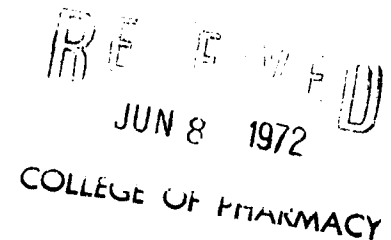 RECEIVED
JUN 8 1972
COLLEGE OF PHARMACY